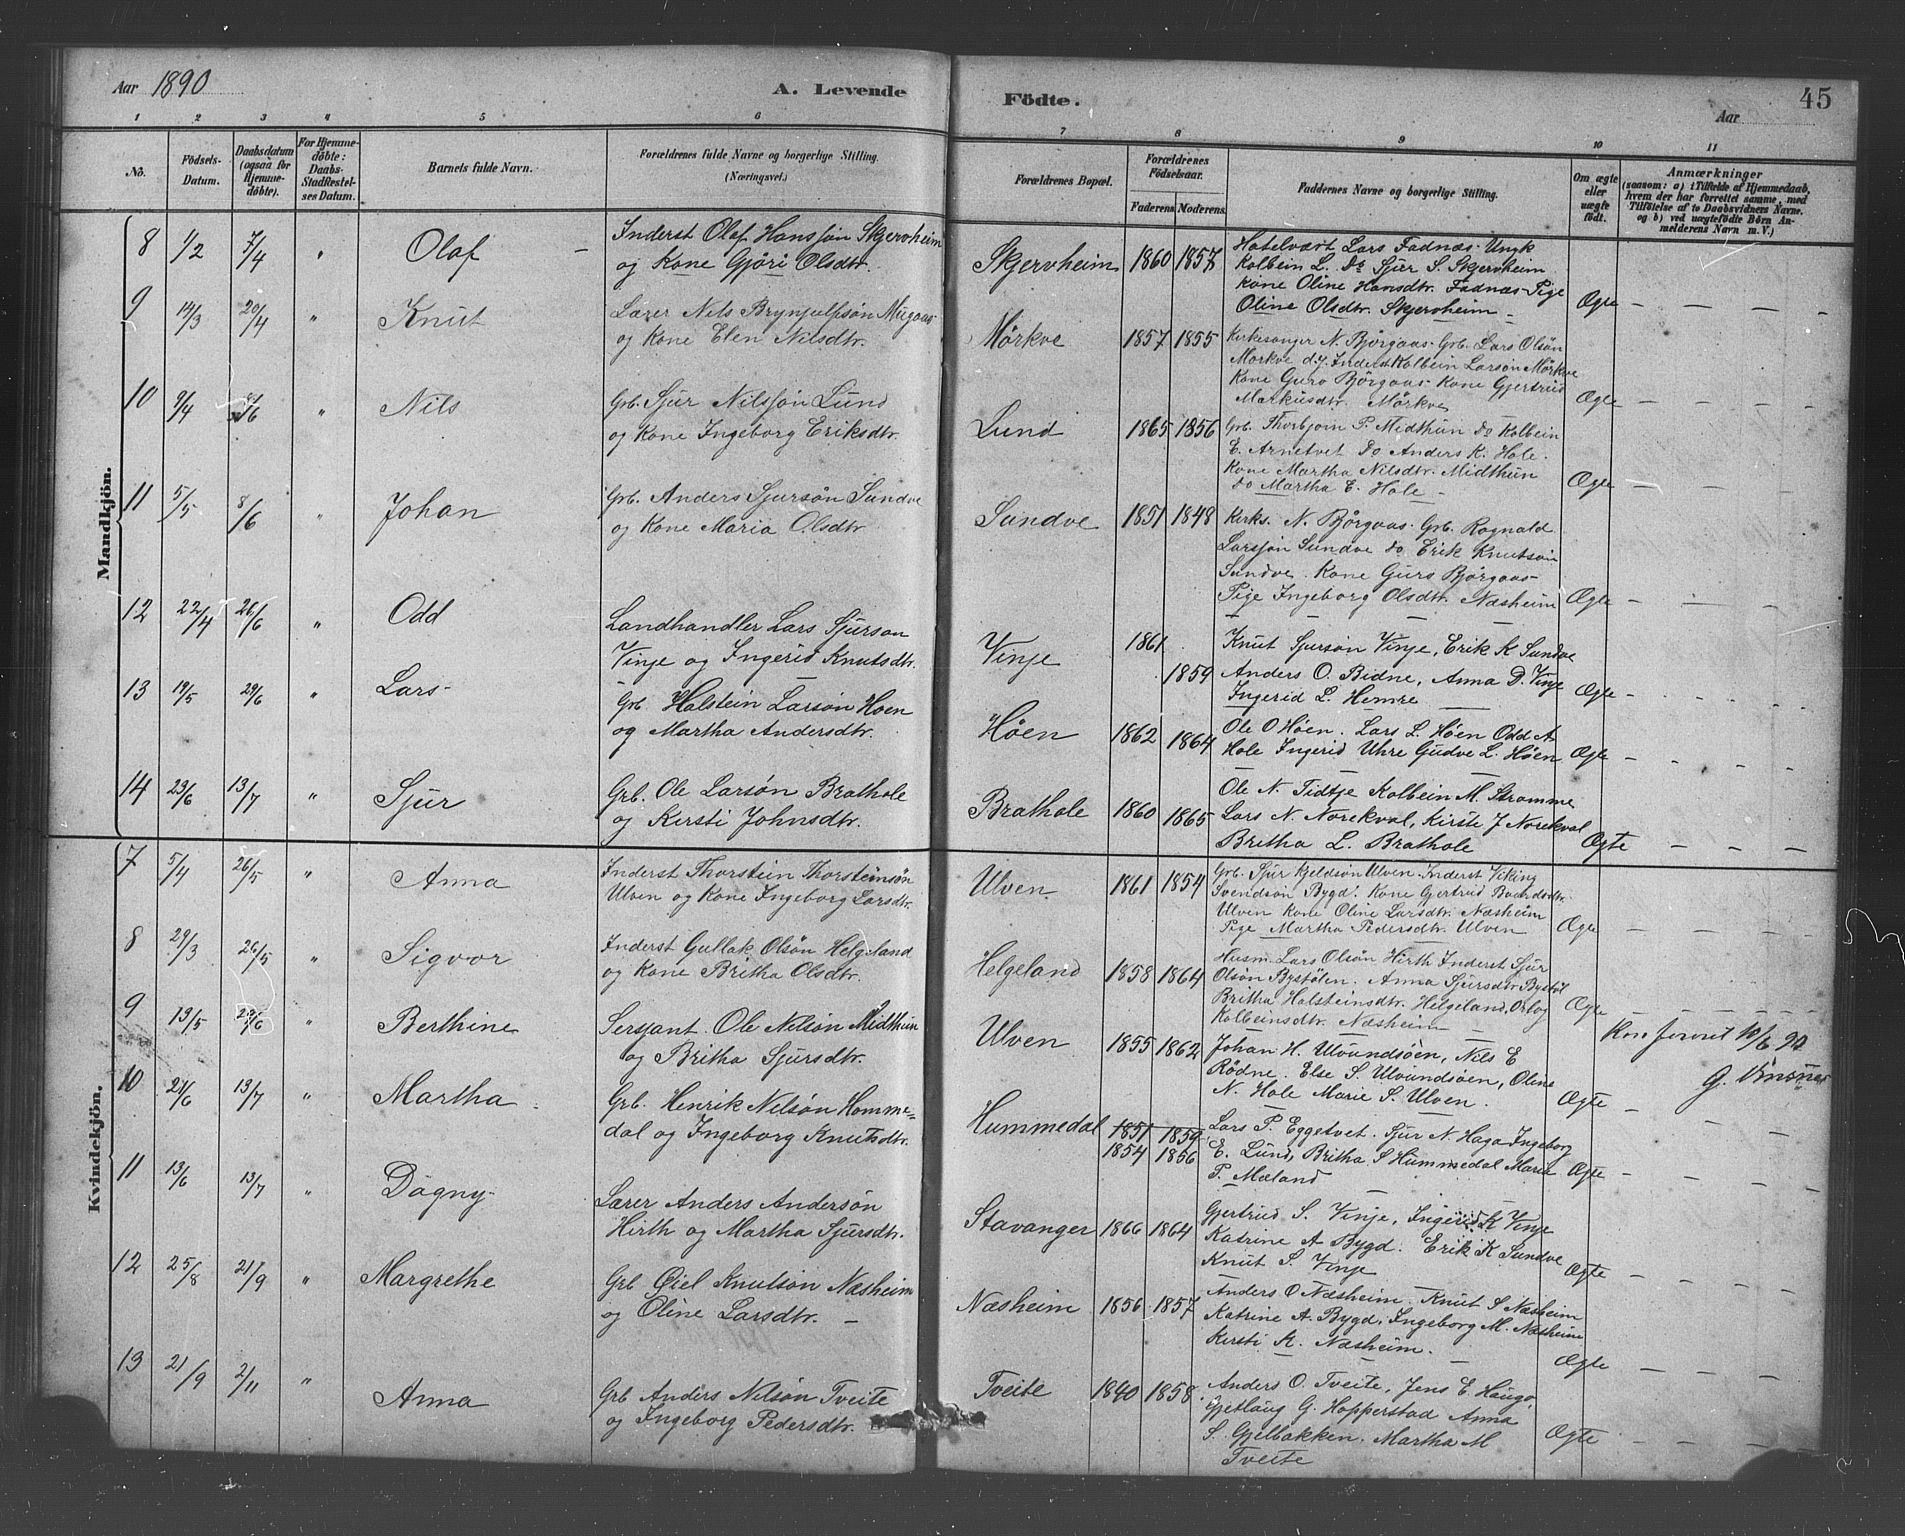 Aar 1890
A. Levende
Födte.
45
Aar
1 2 3 4 5 6 7 8 9 10 11
No.
Födsels-
Datum.
Daabsdatum
(ogsaa for
Hjemme-
döbte).
For Hjemme-
döbte:
Daabs-
Stadfæstel-
ses Datum.
Barnets fulde Navn.
Forældrenes fulde Navne og borgerlige Stilling.
(Næringsvei.)
Forældrenes Bopæl.
Forældrenes
Födselsaar.
Faderens Moderens
Faddernes Navne og borgerlige Stilling.
Om ægte
eller
uægte
födt.
Anmærkninger
(saasom: a) i Tilfælde af Hjemmedaab,
hvem der har forrettet samme, med
Tilföielse af to Daabsvidners Navne.
og b) ved uægtefödte Börn An-
melderens Navn m. V.)
Mandkjön.
8 1/2 7/4 " Olaf –
Inderst Olaf Hanssön Skjervheim
og Kone Gjöri Olsdtr.
Skjervheim 1860 1857
Hotelvært Lars Fadnæs. Ungk
Kolbein L. do Sjur S. Skjervheim
Kone Oline Hansdtr. Fadnæs. Pige
Oline Olsdtr. Skjervheim
Ægte
9 14/3 20/4 " Knut
Lærer Nils Brynjulfsön Mugaas
og Kone Elen Nilsdtr.
Mörkve 1857 1855
Kirkesanger N. Björgaas. Grb. Lars Olsön
Mörkve d.y. Inderst Kolbein Larsön Mörkve
Kone Guro Björgaas. Kone Gjertrud
Markusdtr. Mörkve
Ægte
10 9/4 " Nils
Grb. Sjur Nilssön Lund
og Kone Ingeborg Eriksdtr.
Lund 1865 1856
Grb. Thorbjörn P. Midthun do Kolbein
E. Arnetvet do Anders K. Hole.
Kone Martha Nilsdtr. Midthun
do Martha E. Hole
Ægte
11 5/5 8/6 " Johan
Grb. Anders Sjursön Sundve
og Kone Maria Olsdtr
Sundve 1851 1848
Kirks. N. Björgaas. Grb. Rognald
Larssön Sundve do Erik Knutsön
Sundve. Kone Guro Björgaas
Pige Ingeborg Olsdtr. Næsheim
Ægte
12 22/4 26/6 " Odd
Landhandler Lars Sjurson
Vinje og Ingerid Knutsdtr.
Vinje 1861 1859
Knut Sjurson Vinje, Erik K Sundve
Anders O. Bidne, Anna D. Vinje
Ingerid L. Hemre
Ægte
13 19/5 29/6 " Lars
Grb. Holstein Larsön Hoen
og Martha Andersdtr.
Höen 1862 1864
Ole O Höen. Lars L. Höen Odd A
Hole Ingerid Uhre Gudve L. Höen
Ægte
14 23/6 13/7 " Sjur
Grb. Ole Larsön Brathole
og Kersti Johnsdtr.
Brathole 1860 1865
Ole N. Tidtje Kolbein M. Strømme
Lars N. Norekval, Kirste J Norekval
Britha L. Brathole
Ægte
Kvindekjön.
7 5/4 26/5 " Anna
Inderst Thorstein Thorsteinsön
Ulven og Kone Ingeborg Larsdtr.
Ulven 1861 1854
Grb. Sjur Kjeldsön Ulven. Inderst Viking
Svendsön Bygd. Kone Gjertrud
Ulven Kone Oline Larsdtr. Næsheim
Pige Martha Pedersdtr. Ulven
Ægte
8 29/3 26/5 " Sigvor
Inderst Gullak Olsön Helgeland
og Kone Britha Olsdtr.
Helgeland 1858 1864
Husm. Lars Olsön Hirth Inderst Sjur
Olsön Bystölen. Anna Sjursdtr Bystöl
Britha Holsteinsdtr. Helgeland,
Kolbeinsdtr. Næsheim
Ægte
9 13/5 " Berthine
Sersjant Ole Nelsön Midthun
og Britha Sjursdtr.
Ulven 1855 1862
Johan H. Ulvundsöen, Nils E
Rödne. Else S. Ulvundsöen, Oline
N. Hole Marie S. Ulven.
Ægte
10/6 90
G.
10 21/6 13/7 " Martha
Grb. Henrik Nelsön Homme-
dal og Ingeborg Knutsdtr.
Hummedal 1851 1859
1854 1856
Lars P. Eggetvet. Sjur N. Haga Ingeborg
E. Lund, Britha S Hummedal Marie
P. Mæland
Ægte
11 13/6 13/7 " Dagny
Lærer Anders Andersön
Hirth og Martha Sjursdtr.
Stavanger 1866 1864
Gjertrud S. Vinje, Ingerid K Vinje
Katrine A Bygd. Erik K Sundve
Knut S. Vinje
Ægte
12 25/8 21/9 " Margrethe
Grb Eiel Knutsön Næsheim
og Oline Larsdtr. –
Næsheim 1856 1857
Anders O Næsheim. Knut S Næsheim
Katrine A. Bygd, Ingeborg M. Næsheim
Kersti K. Næsheim.
Ægte
13 21/9 2/11 " Anna
Grb Anders Nilsön Tveite
og Ingeborg Pedersdtr.
Tveite 1840 1858
Anders O. Tveite, Jens E. Haugo
Gjetlaug G. Hopperstad Anna
S. Gjelbakken. Martha M
Tveite
Ægte